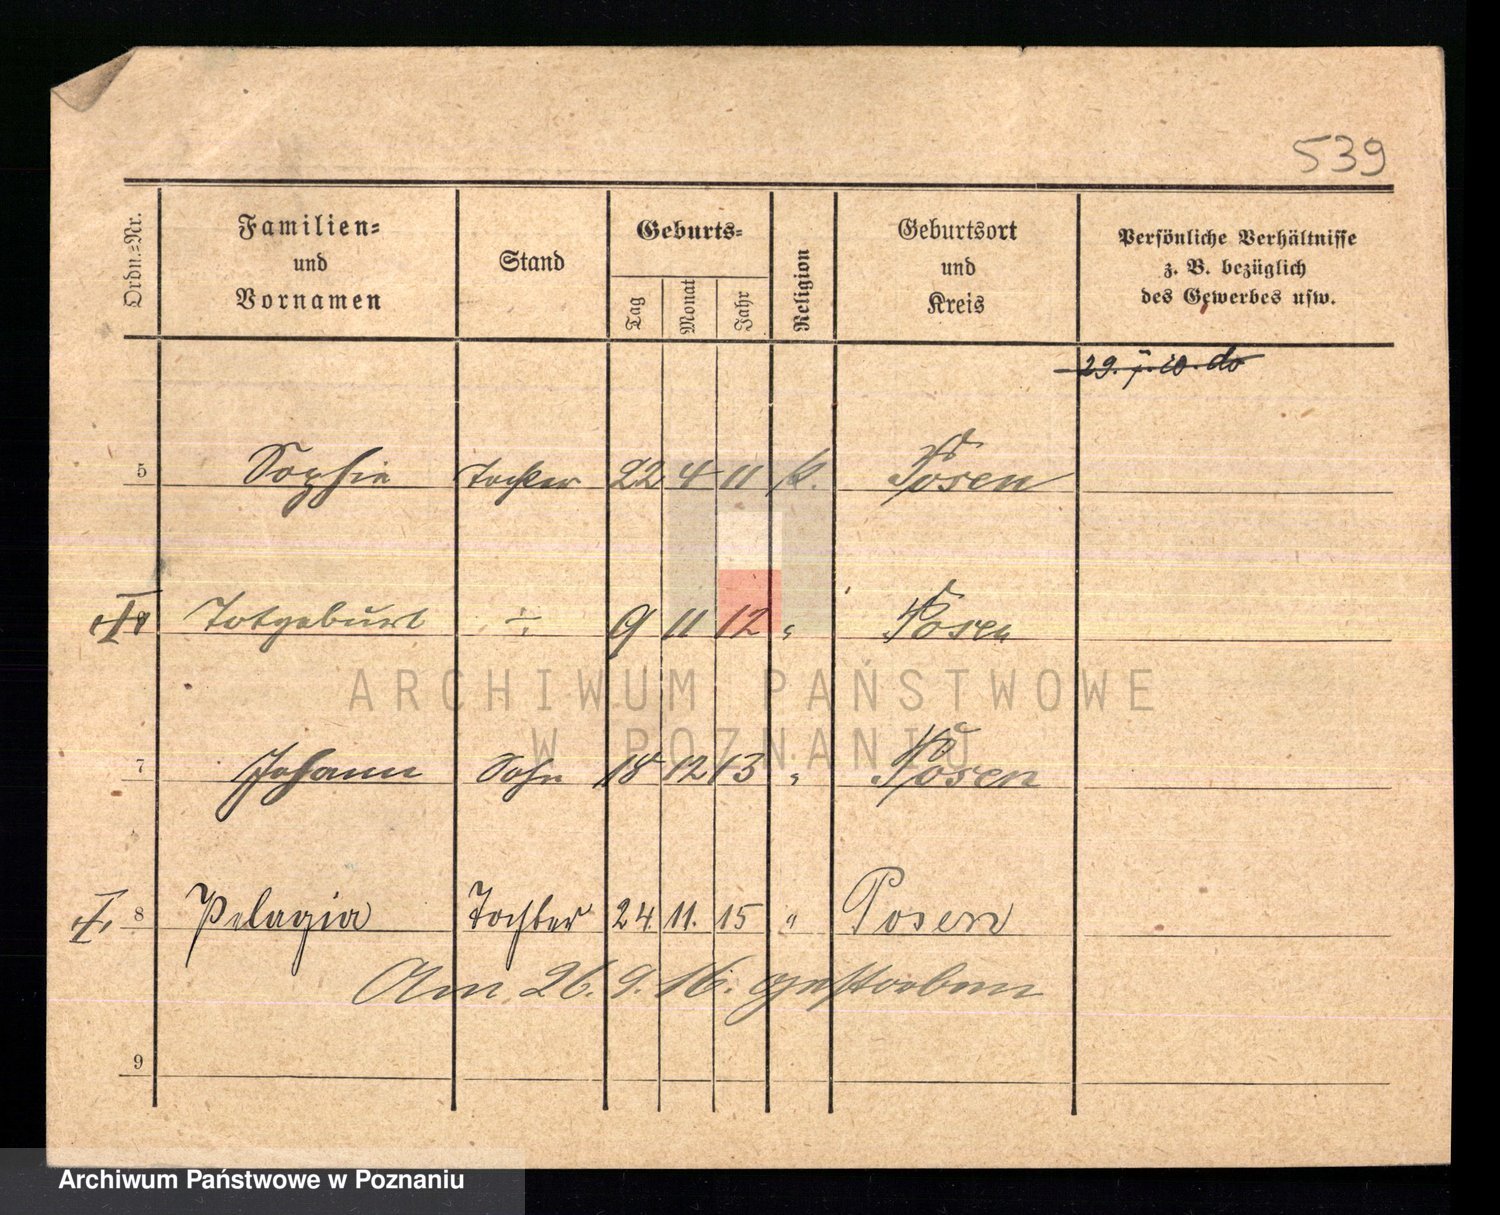 539
Ordn.-Nr.
Familien-
und
Vornamen
Stand
Geburts-
Tag
Monat
Jahr
Religion
Geburtsort
und
Kreis
Persönliche Verhältnisse
z. B. bezüglich
des Gewerbes usw.
5 Sophie Tochter 22 4 11 k. Posen
Totgeburt ÷ 9 11 12 " Posen
ARCHIWUM PAŃSTWOWE
W POZNANIU
7 Johann Sohn 18 12 13 " Posen
8 Pelagia Tochter 24. 11. 15 " Posen
Am 26. 9. 16. gestorben
9
Archiwum Państwowe w Poznaniu